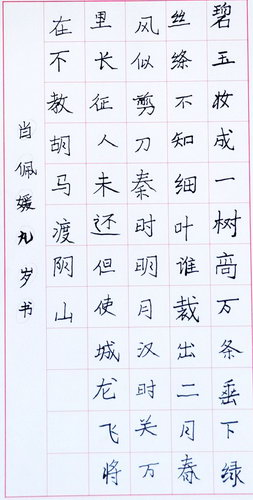 碧玉妆成一树高万条垂下绿
丝绦不知细叶谁裁出二月春
风似剪刀秦时明月汉时关万
里长征人未还但使城龙飞将
在不教胡马渡阴山
肖佩媛九岁书